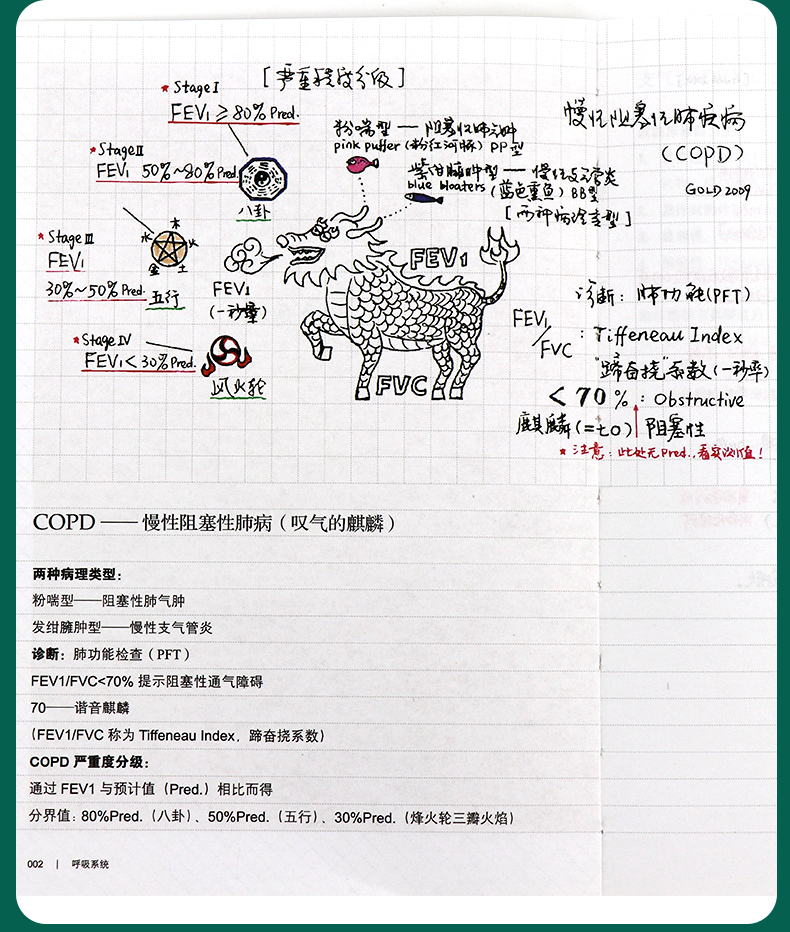 [严重程度分级]
* Stage I
FEV₁ ≥ 80% Pred.
* Stage II
FEV₁ 50%~80% Pred.
八卦
* Stage III
FEV₁
30%~50% Pred.
木
火
土
金
水
五行
* Stage IV
FEV₁ < 30% Pred.
风火轮
FEV₁
(一秒量)
粉喘型 — 阻塞性肺气肿
pink puffer (粉红河豚) PP型
紫绀臃肿型 — 慢性支气管炎
blue bloaters (蓝色熏鱼) BB型
[两种病理类型]
FEV1
FVC
慢性阻塞性肺疾病
(COPD)
GOLD 2009
诊断: 肺功能(PFT)
FEV₁/FVC : Tiffeneau Index
"蹄奋挠"系数(一秒率)
< 70% : Obstructive
麒麟(=70) 阻塞性
* 注意: 此处无Pred.,看实测值!
COPD —— 慢性阻塞性肺病(叹气的麒麟)
两种病理类型:
粉喘型——阻塞性肺气肿
发绀臃肿型——慢性支气管炎
诊断: 肺功能检查(PFT)
FEV1/FVC<70% 提示阻塞性通气障碍
70——谐音麒麟
(FEV1/FVC 称为 Tiffeneau Index, 蹄奋挠系数)
COPD 严重度分级:
通过 FEV1 与预计值 (Pred.) 相比而得
分界值: 80%Pred. (八卦)、50%Pred. (五行)、30%Pred. (烽火轮三瓣火焰)
002 | 呼吸系统